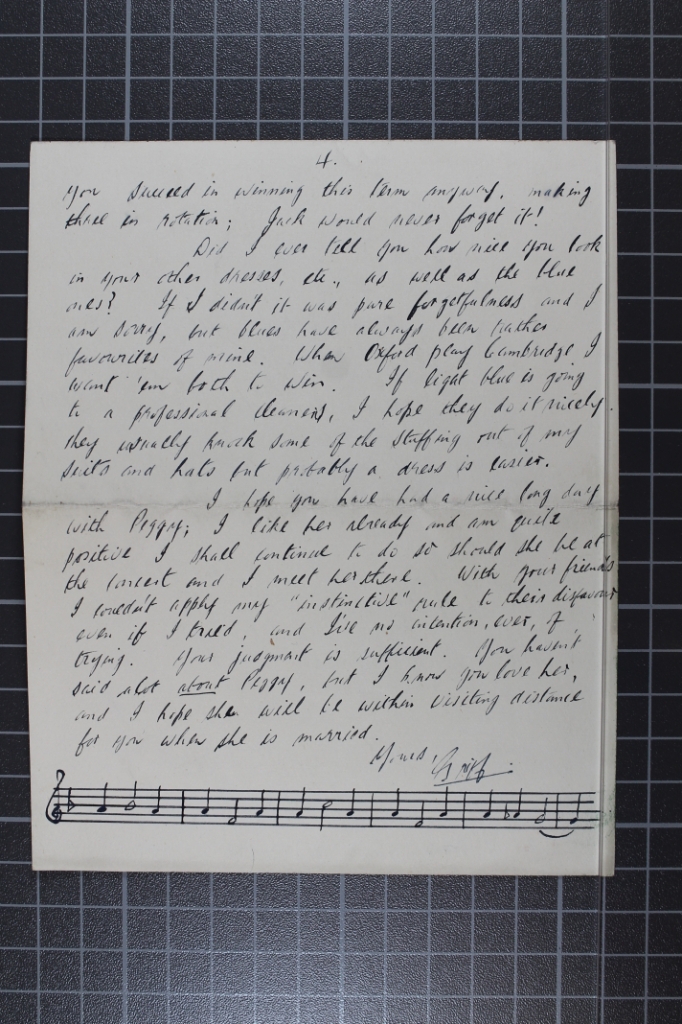 4.
you succeed in winning this term anyway, making
three in rotation; Jack would never forget it!
Did I ever tell you how nice you look
in your other dresses, etc., as well as the blue
ones? If I didn't it was pure forgetfulness and I
am sorry, but blues have always been rather
favourites of mine. When Oxford play Cambridge, I
want 'em both to win. If light blue is going
to a professional cleaners, I hope they do it nicely.
they usually knock some of the stuffing out of my
suits and hats but probably a dress is easier.
I hope you have had a nice long day
with Peggy; I like her already and am quite
positive I shall continue to do so should she be at
the concert and I meet her there. With your friends
I couldn't apply my "instinctive" rule to their disfavour
even if I tried, and I've no intention, ever, of
trying. Your judgment is sufficient. You haven't
said alot about Peggy, but I know you love her,
and I hope she will be within visiting distance
for you when she is married.
Yours,